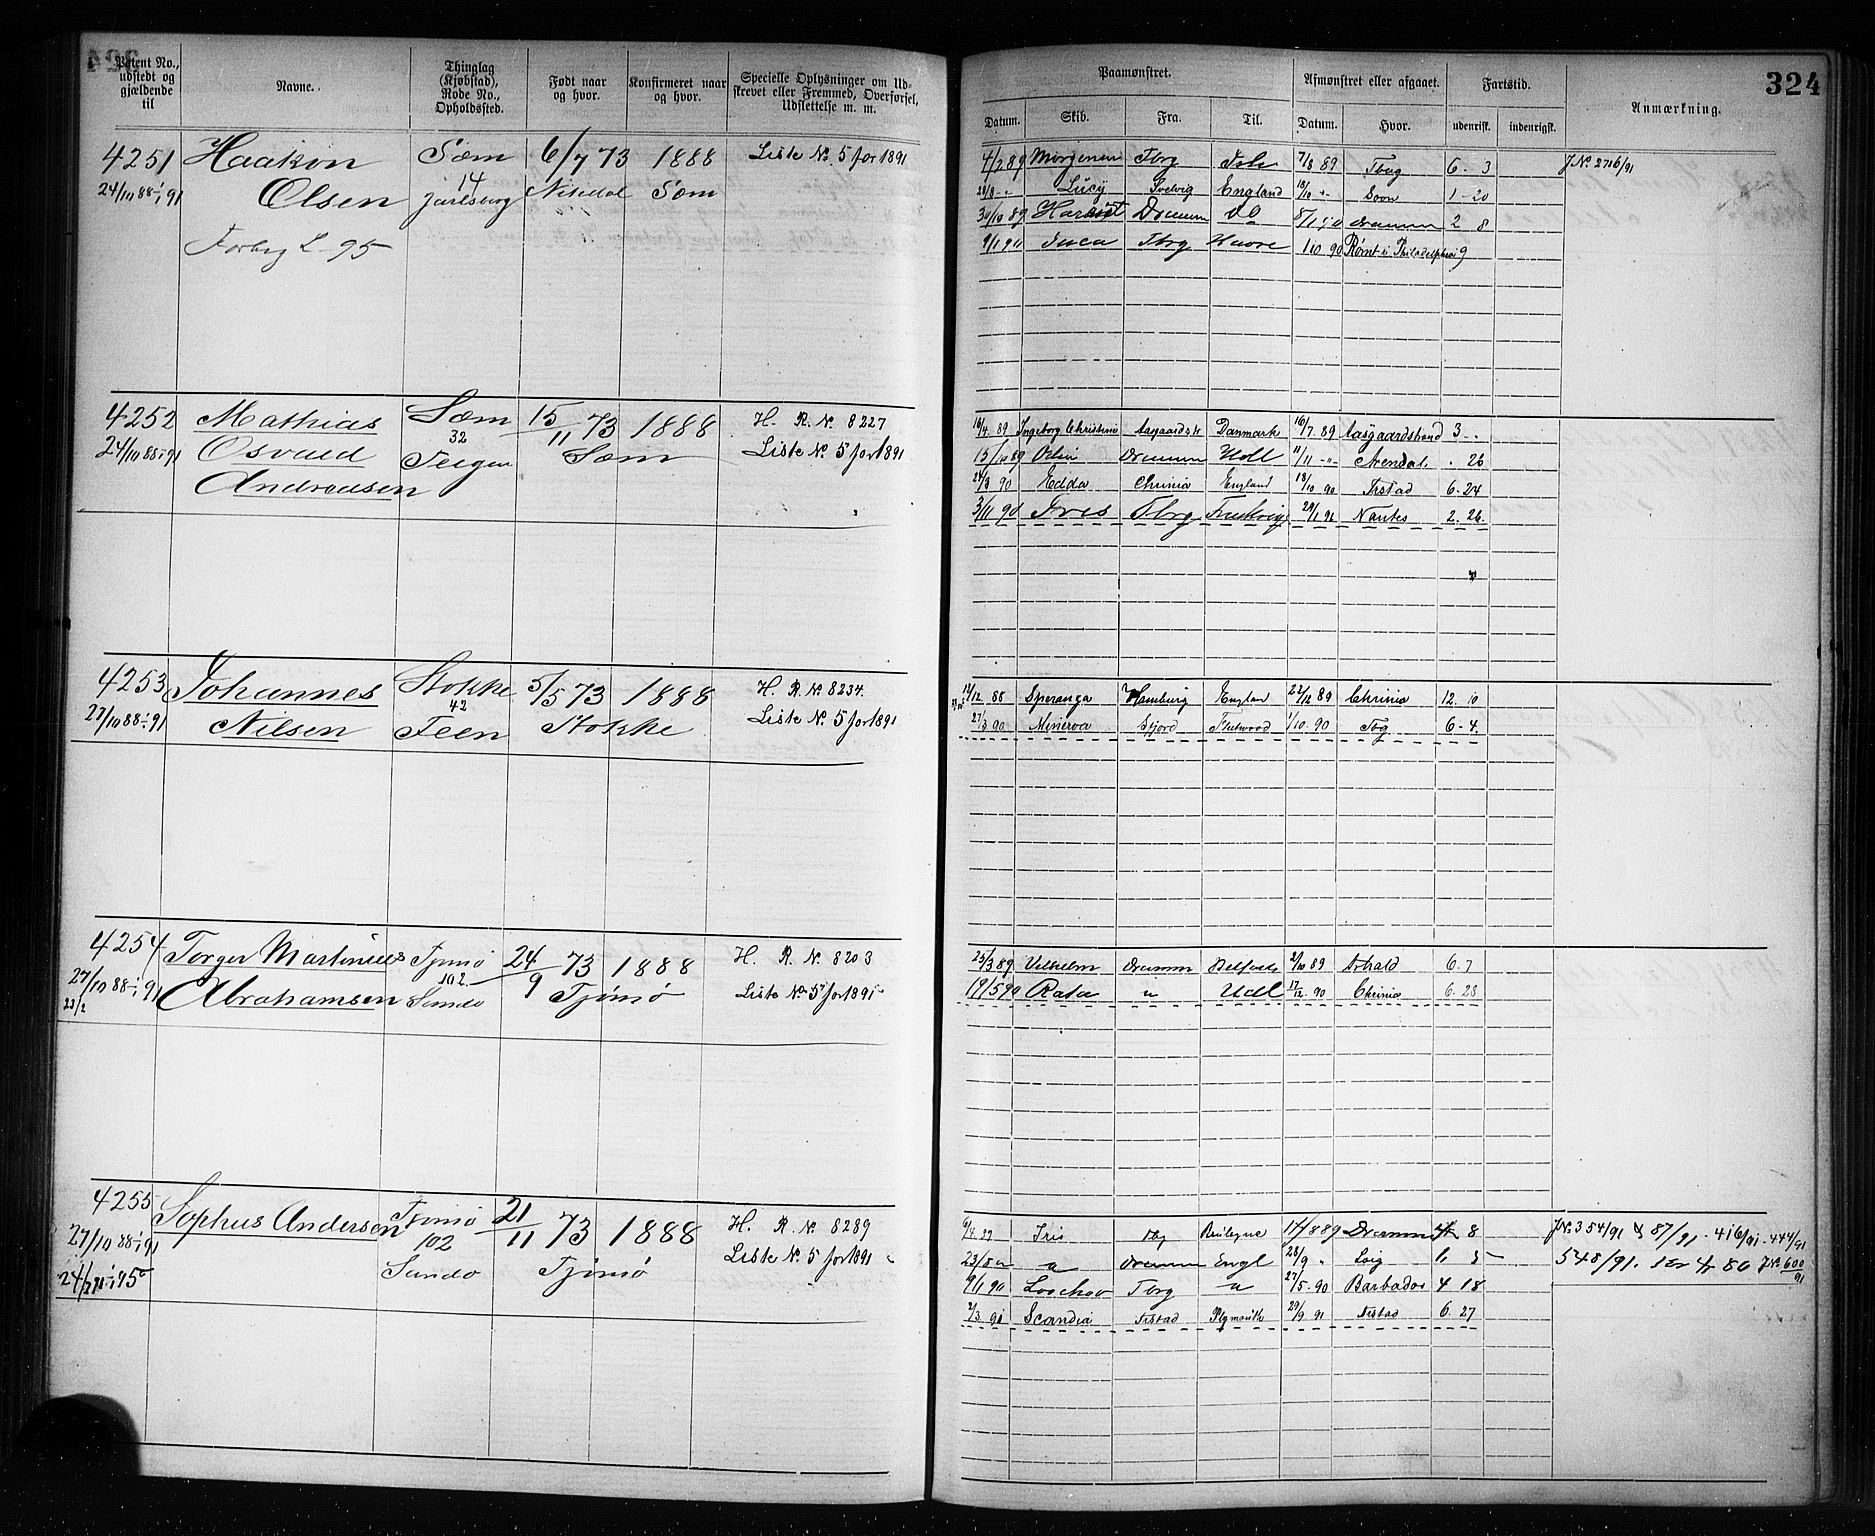 324
Patent No., udstedt og gjældende til
Navne.
Thinglag (Kjøbstad), Rode No., Opholdssted.
Født naar og hvor.
Konfirmeret naar og hvor.
Specielle Oplysninger om Udskrevet eller Fremmed, Overførsel, Udslettelse m. m.
Paamønstret.
Afmønstret eller afgaaet.
Fartstid.
Anmærkning.
Datum. Skib. Fra. Til. Datum. Hvor. udenrigsk. indenrigsk.
4251 Haakon Sæm 6/7 73 1888 Liste No. 5 for 1891
24/10 88-1/1 91 Olsen 14 Jarlsberg Sæm
L. 95
4/2 89 Tbrg 7/8 89 Tbrg 6 - 3 J No. 2716/91
Lucy Svelvig England Soon 1 - 20
30/10 89 Dramm do Dramm 2 8
9/1 90 Tbrg Havre 1/10 90 Rømt i Philadelphia 9
4252 Mathias Sæm 15/11 73 1888 H. R. No. 8227
24/10 88-1/1 91 Osvald 32 Teigen Sæm Liste No. 5 for 1891
Andreasen
16/4 89 Ingeborg Christine Aasgaardstr Danmark 16/7 89 Aasgaardstrand 3 - .
15/10 89 Dramm Holl 11/11 -"- Arendal . 26
24/3 90 Edda Chrania England 18/10 90 Frstad 6 - 24
3/11 90 Iris Tbrg 29/1 91 Nantes 2. 26.
4253 Johannes Stokke 5/5 73 1888 H. R. No. 8234.
27/10 88-1/1 91 Nilsen 42 Feen Stokke Liste No. 5 for 1891
14/12 88 Speranza Hamburg England 22/12 89 Chrania 12. 10
27/3 90 Minerva Sfjord Fleetwood 1/10 90 Tbg 6 - 4.
4254 Torger Martinius Tjømø 24/9 73 1888 H. R. No. 8203
27/10 88-1/1 91 Abrahamsen 102 Sundø Tjømø Liste No. 5 for 1891
23/2
25/3 89 Vilhelm Dramm Belfast 2/10 89 6. 7
19/5 90 Rota " Udl 17/12 90 Chrania 6. 28
4255 Sophus Andersen Tjømø 21/11 73 1888 H. R. No. 8289
27/10 88-1/1 91 102 Sundø Tjømø Liste No. 5 for 1891
Iris Tbg 17/8 89 Dramm 4 8 J No. 354/91 & 87/91 - 416/91 - 444/91
23/8 " " Dramm Engl 28/9 " 1. 5 548/91. J No. 600/91
9/1 90 Tbrg " 27/5 90 Barbados 4 18
2/3 91 Scandia Frstad Plymouth 29/9 91 Frstad 6. 27